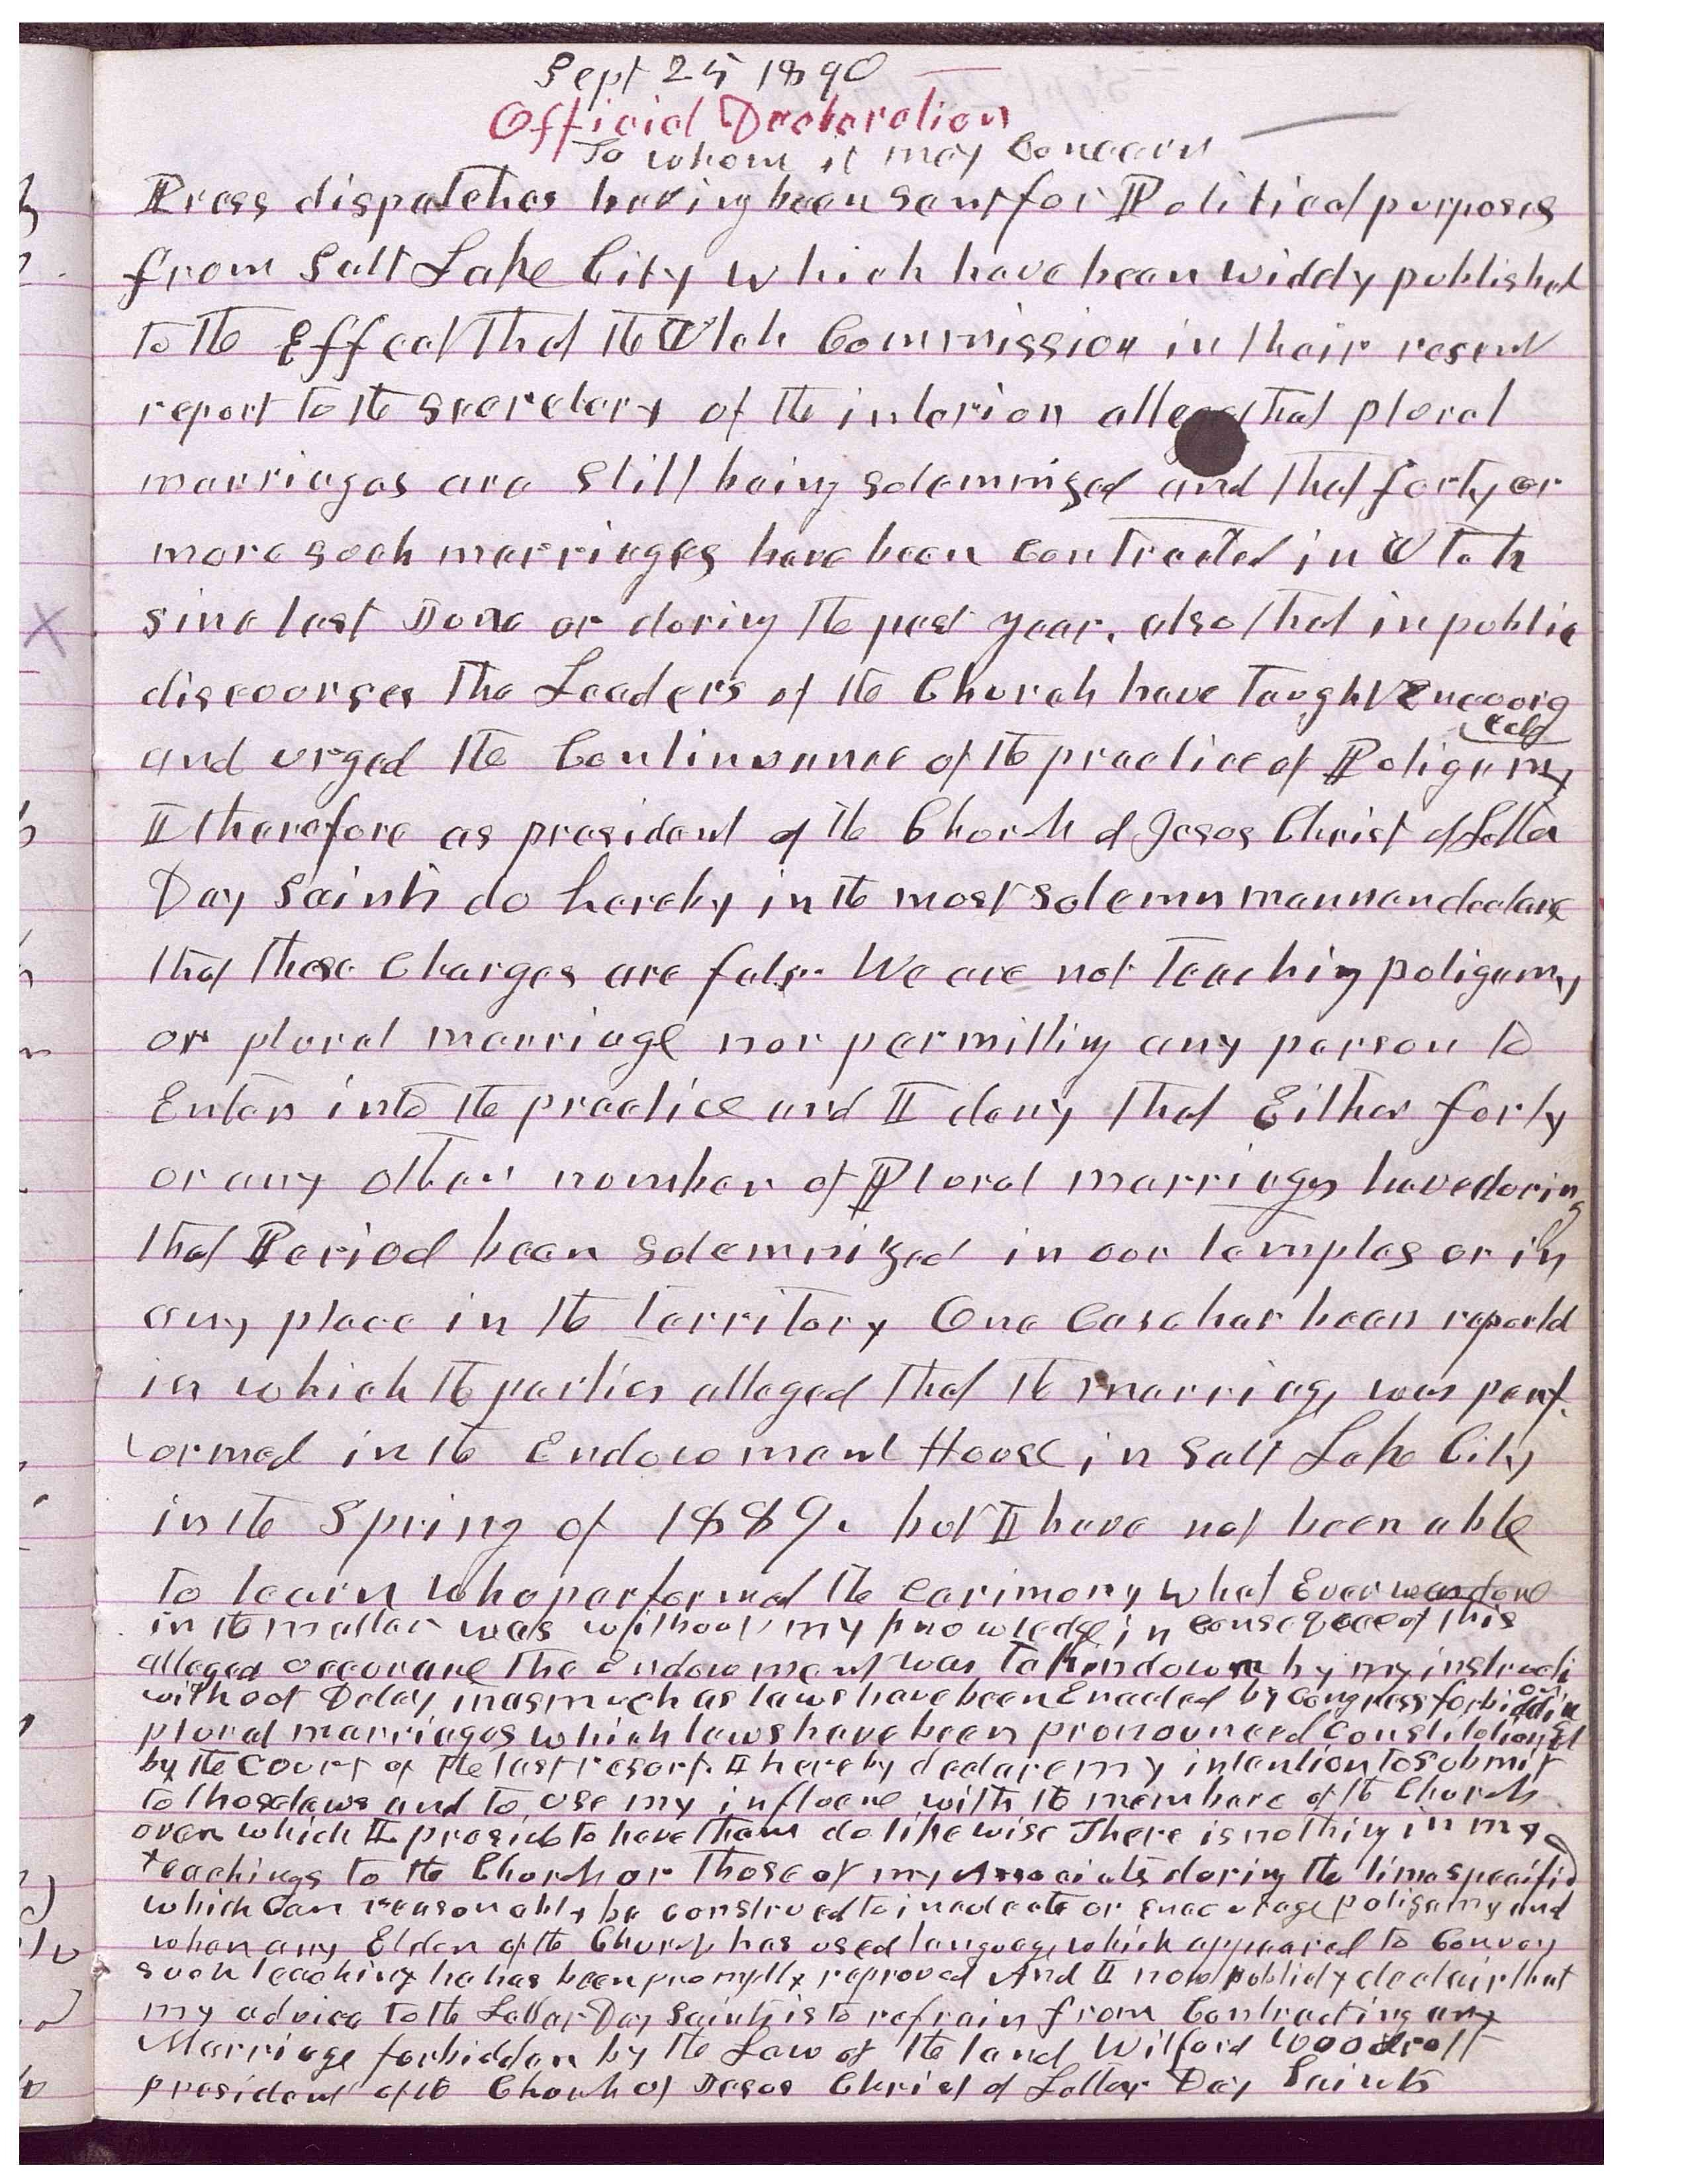 Sept 25 1890
Official Declaration
To whom it may Concern
Press dispatches having been sent for Political purposes
from Salt Lake City which have been widely published
to the Effect that the Utah Commission in their resent
report to the secretary of the interior allege that plural
marriages are still being solemnized and that forty or
more such marriages have been contracted in Utah
since last June or during the past year. also that in public
discourses the Leaders of the Church have taught Encourg
aged
and urged the Continuance of the practice of Poligamy
I therefore as president of the Church of Jesus Christ of Latter
Day Saints do hereby in the most solemn manner declare
that these charges are false We are not teaching poligamy
or plural marriage nor permitting any person to
Enter into the practice and I deny that Either forty
or any other number of Plural marriages have during
that Period been solemnized in our temples or in
any place in the territory One Case has been reported
in which the parties alleged that the marriage was perf
ormed in the Endowment House in Salt Lake City
in the Spring of 1889. but I have not been able
to learn who performed the cerimony what Ever was done
in the matter was without my knowledge in consequence of this
alleged occurance the Endowment was taken down by my instructi
on
without Delay inasmuch as laws have been Enacted by congress forbidding
plural marriages which laws have been pronounced constitutional
by the court of the last resort. I hereby declare my intention to submit
to those laws and to use my influence with the members of the Church
over which I preside to have them do like wise There is nothing in my
teachings to the Church or those of my Associats during the time specified
which can reasonably be construed to inculcate or encourage poligamy and
when any Elder of the Church has used language which appeared to Convey
such teaching he has been promptly reproved And I now publicly declair that
my advice to the Latter Day Saints is to refrain from Contracting any
Marriage forbidden by the Law of the land Wilford Woodruff
president of the Church of Jesus Christ of Latter Day Saints